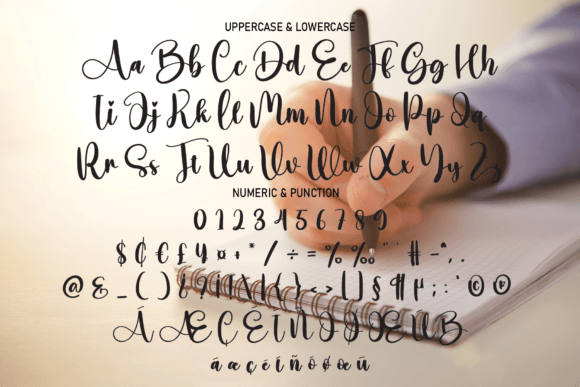 UPPERCASE & LOWERCASE
Aa Bb Cc Dd Ee Ff Gg Hh
Ii Jj Kk Ll Mm Nn Oo Pp Qq
Rr Ss Tt Uu Vv Ww Xx Yy Zz
NUMERIC & PUNCTION
0 1 2 3 4 5 6 7 8 9
$ ₵ € £ ¥ ¤ + * / ÷ = % ‰ " ' # - ^ , .
@ & _ ( )
Á Æ Ç É Í Ñ Ó Ø Œ Ú ß
á æ ç é í ñ ó ø œ ú